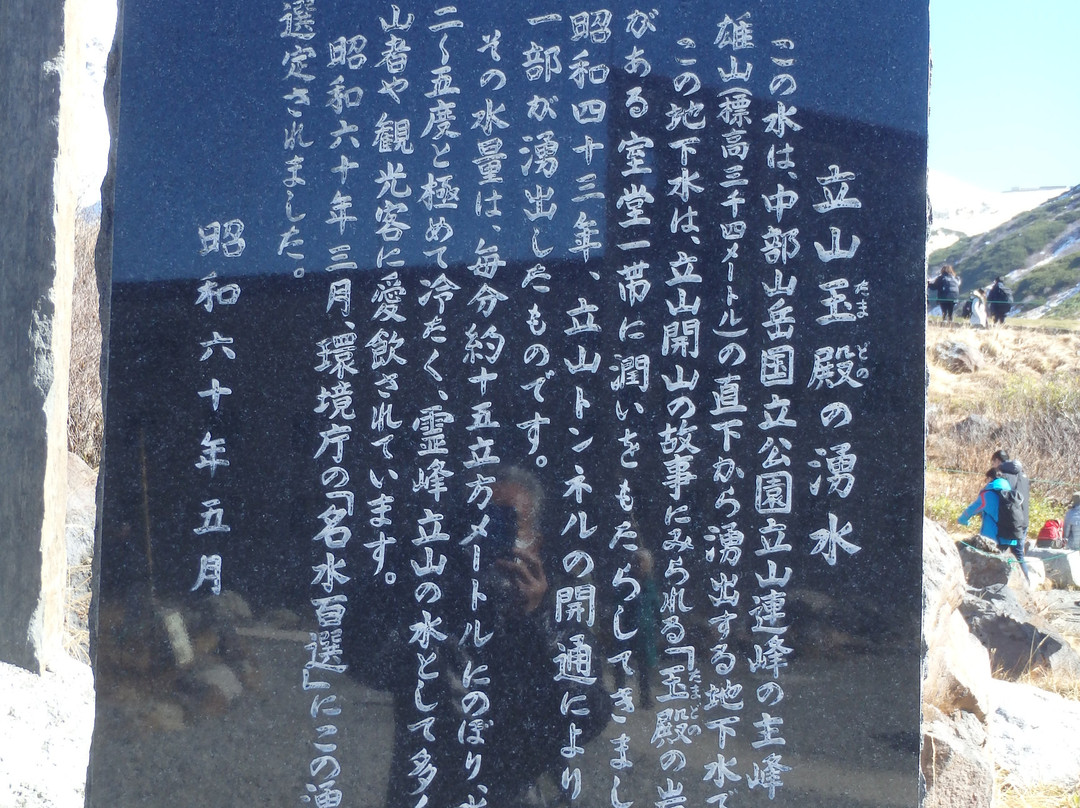 立山玉殿の湧水
たまどの
この水は、中部山岳国立公園立山連峰の主峰
雄山(標高三千四メートル)の直下から湧出する地下水で
この地下水は、立山開山の故事にみられる「玉殿の岩
たまどの
がある室堂一帯に潤いをもたらしてきまし
昭和四十三年、立山トンネルの開通により
一部が湧出したものです。
その水量は、毎分約十五立方メートルにのぼり、
二〜五度と極めて冷たく、霊峰立山の水として多く
山者や観光客に愛飲されています。
昭和六十年三月、環境庁の「名水百選」にこの湧
選定されました。
昭和六十年五月